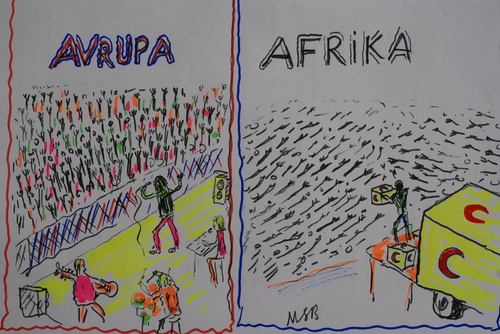 AVRUPA
AFRİKA
MSB